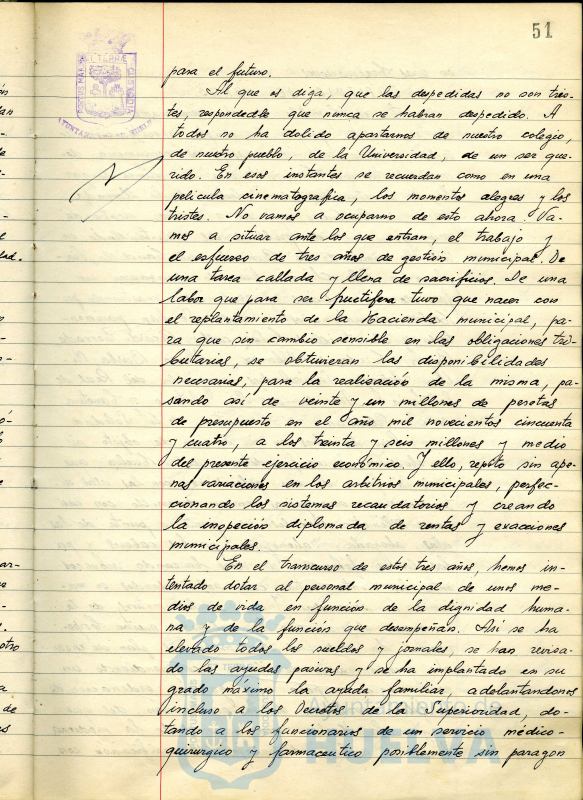 51
para el futuro.
Al que os diga, que las despedidas no son tris-
tes, respondedle que nunca se habran despedido. A
todos no ha dolido apartarnos de nuestro colegio,
de nuestro pueblo, de la Universidad, de un ser que-
rido. En esos instantes se recuerdan como en una
pelicula cinematografica, los momentos alegres y los
tristes. No vamos a ocuparno de esto ahora. Va-
mos a situar ante los que entran, el trabajo y
el esfuerzo de tres años de gestión municipal. De
una tarea callada y llena de sacrificios. De una
labor que para ser fructifera tuvo que nacer con
el replantamiento de la Hacienda municipal, pa-
ra que sin cambio sensible en las obligaciones tri-
butarias, se obtuvieran las disponibilidades
necesarias, para la realización de la misma, pa-
sando así de veinte y un millones de pesetas
de presupuesto en el año mil novecientos cincuenta
y cuatro, a los treinta y seis millones y medio
del presente ejercicio económico. Y ello, repito sin ape-
nas variaciones en los arbitrios municipales, perfec-
cionando los sistemas recaudatorios y creando
la inspeción diplomada de rentas y exacciones
municipales.
En el transcurso de estos tres años, hemos in-
tentado dotar al personal municipal de unos me-
dios de vida en función de la dignidad huma-
na y de la función que desempeñan. Así se ha
elevado todos los sueldos y jornales, se han revisa-
do las ayudas pasivas y se ha implantado en su
grado máximo la ayuda familiar, adelantandonos
incluso a los Decretos de la Superioridad, do-
tando a los funcionarios de un servicio médico-
quirurgico y farmaceutico posiblemente sin paragon
HUELVA